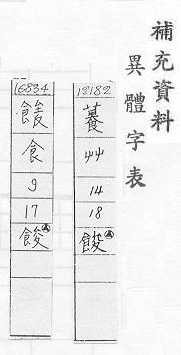 補充資料
異體字表
12182
艸
14
18
餕
16834
食
9
17
餕